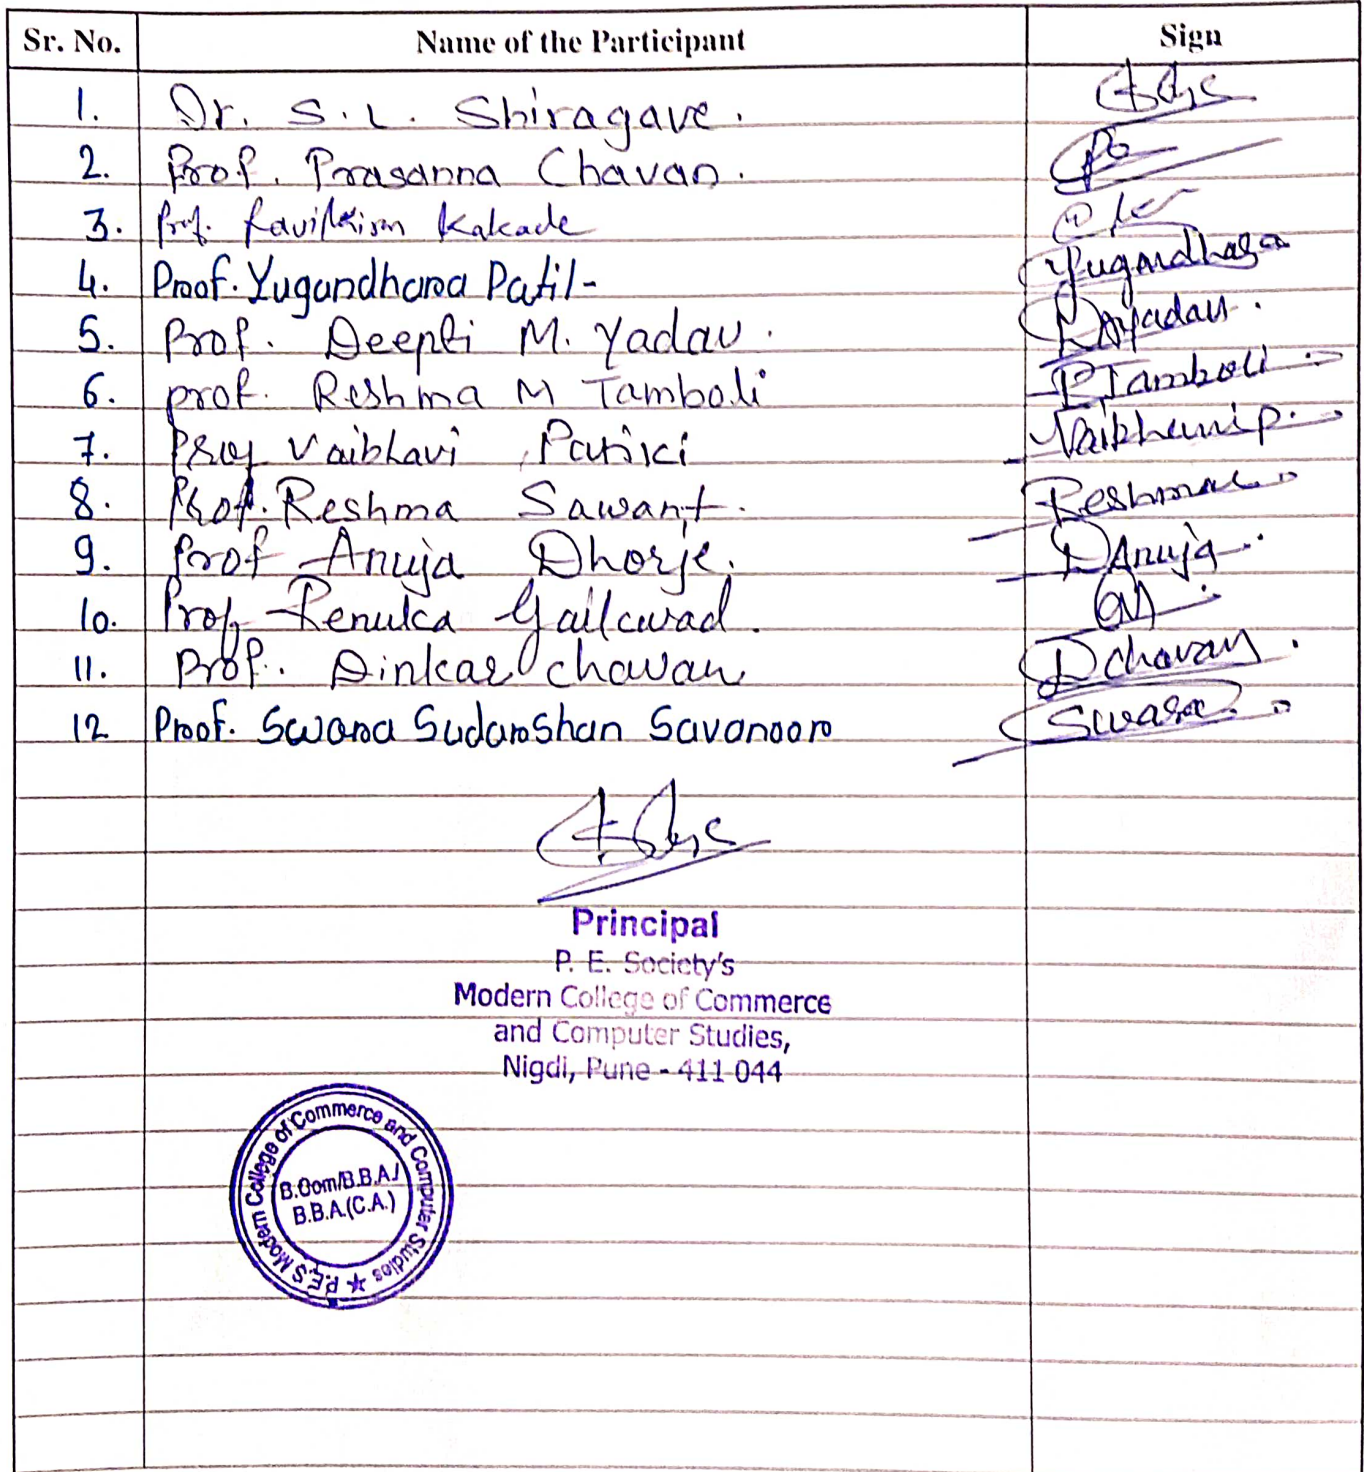 Sr. No. Name of the Participant Sign
1. Dr. S. L. Shiragave.
2. Prof. Prasanna Chavan.
3. Prof. Kakade
4. Prof. Yugandhara Patil- Yugandhara
5. Prof. Deepti M. Yadav. DMYadav.
6. prof. Reshma M Tamboli RTamboli
7. Prof Vaibhavi VaibhaviP.
8. Prof. Reshma Sawant. Reshma
9. Prof Anuja Dhorje. DAnuja
10. Prof. Renuka Gaikwad.
11. Prof. Dinkar Chavan DChavan.
12 Prof. Swara Sudarshan Savanoor Swara
Principal
P. E. Society's
Modern College of Commerce
and Computer Studies,
Nigdi, Pune - 411 044
P.E.S Modern College of Commerce and Computer Studies ★
B.Com/B.B.A./
B.B.A.(C.A.)